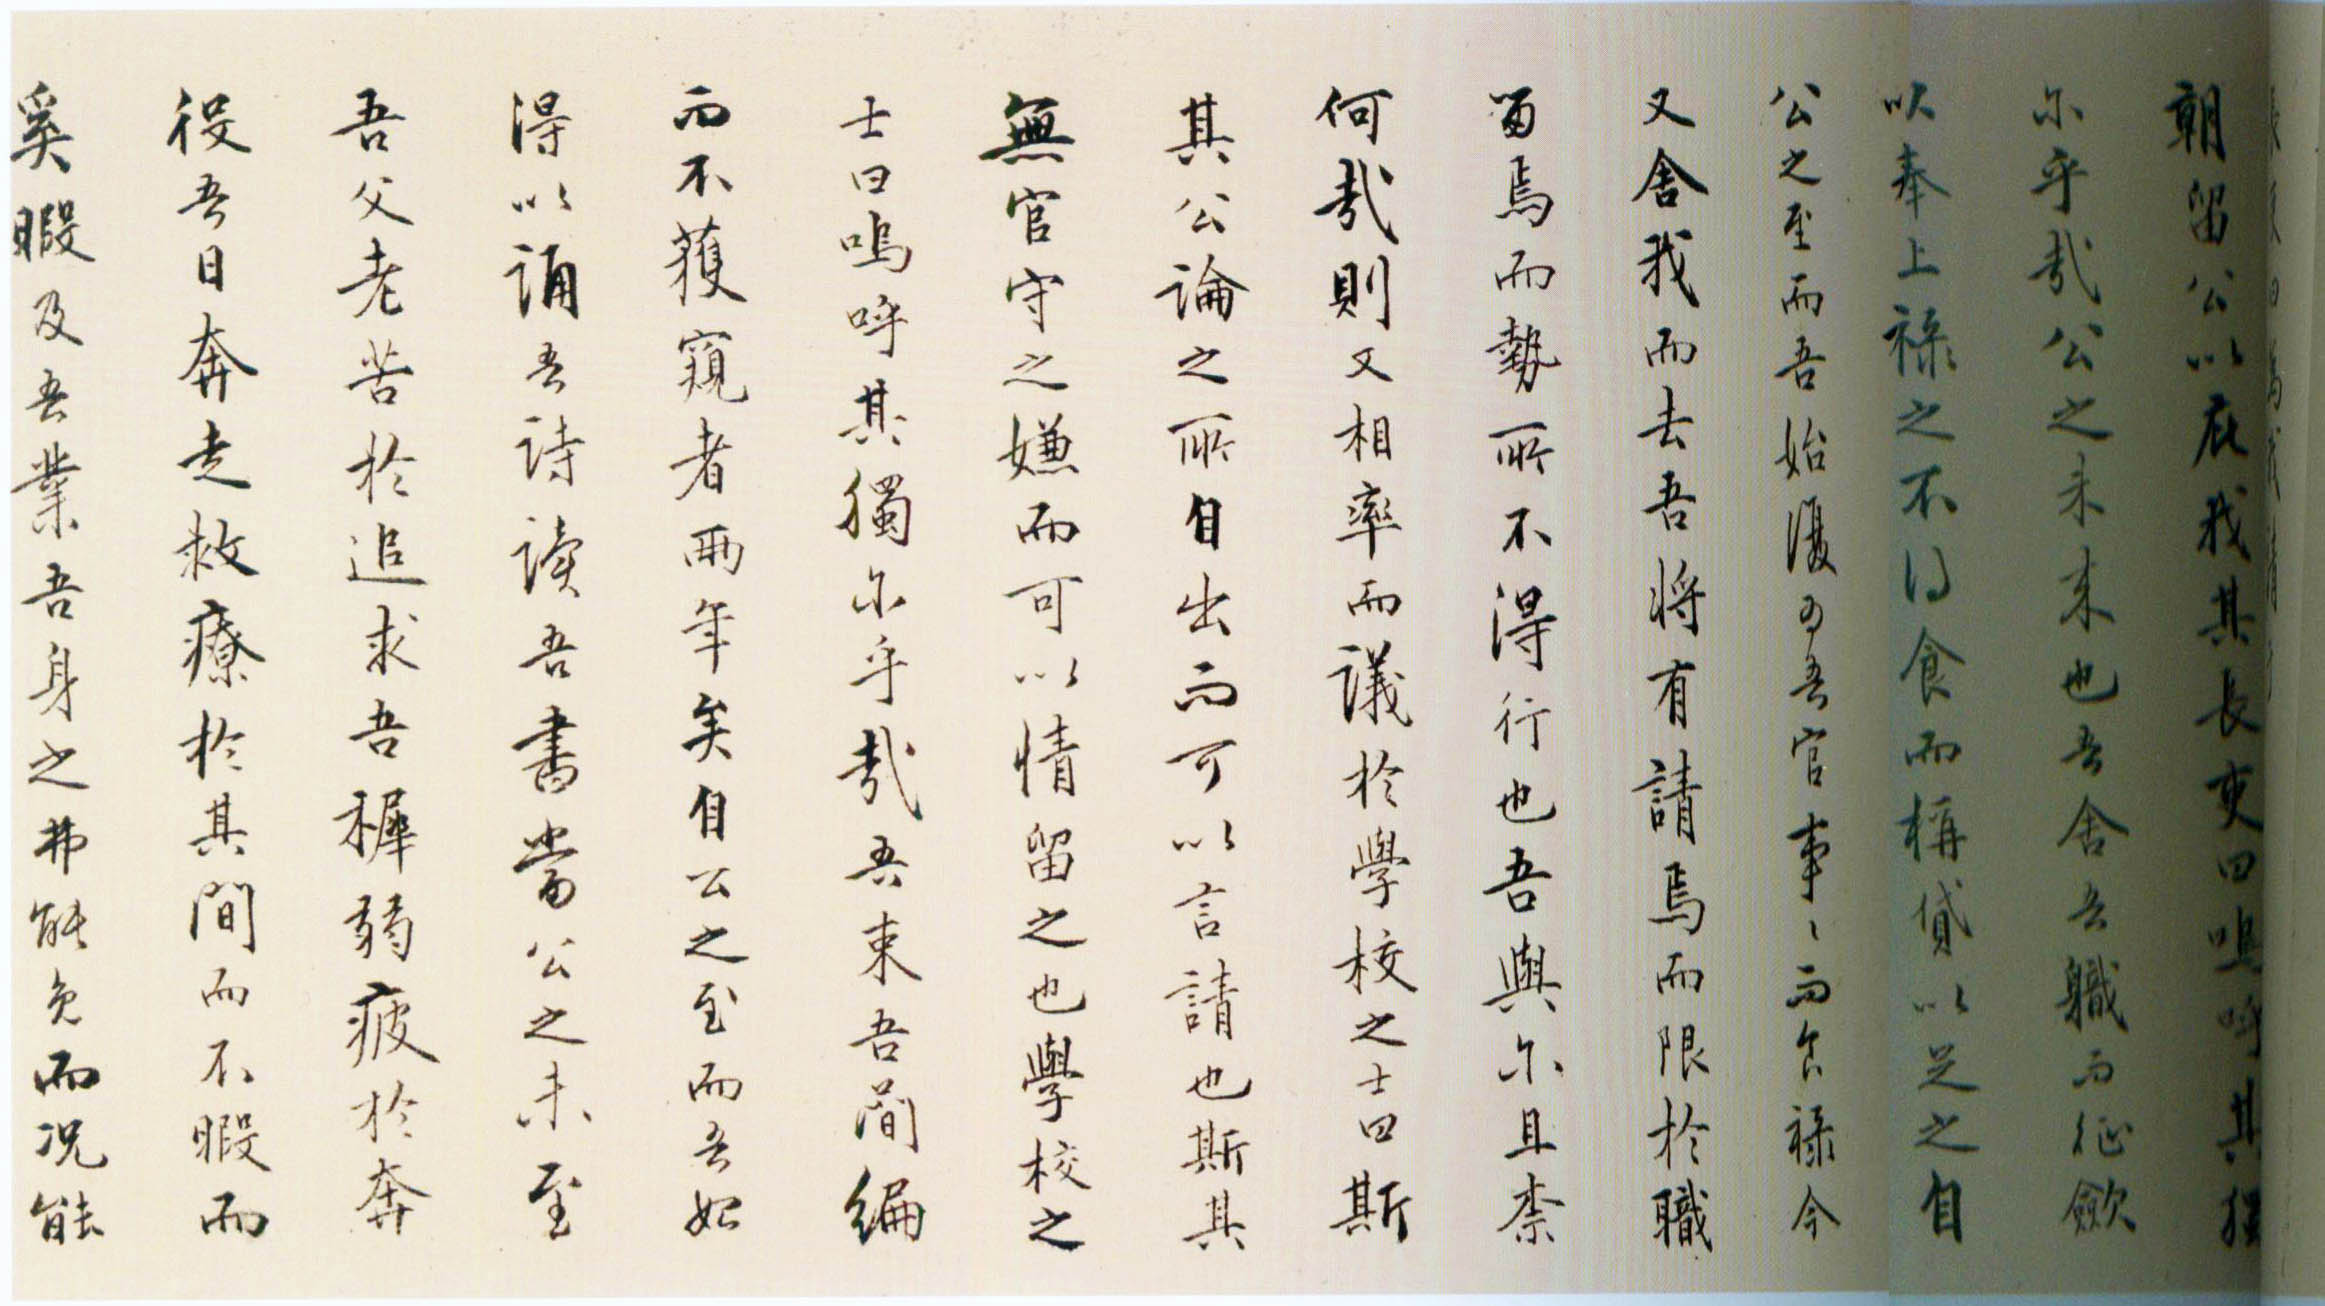 朝留公以庇我其長吏曰嗚呼其獨
尔乎哉公之未来也吾舍吾職而征斂
以奉上禄之不得食而稱貸以足之自
公之至而吾始復為吾官事〻而食禄今
又舍我而去吾将有請焉而限於職
留焉而勢所不得行也吾與尔且柰
何哉則又相率而議於學校之士曰斯
其公論之所自出而可以言請也斯其
無官守之嫌而可以情留之也學校之
士曰嗚呼其獨尔乎哉吾束吾簡編
而不獲窺者兩年矣自公之至而吾始
得以誦吾詩讀吾書當公之未至
吾父老苦於追求吾穉弱疲於奔
役吾日奔走救療於其間而不暇而
奚暇及吾業吾身之弗能免而况能